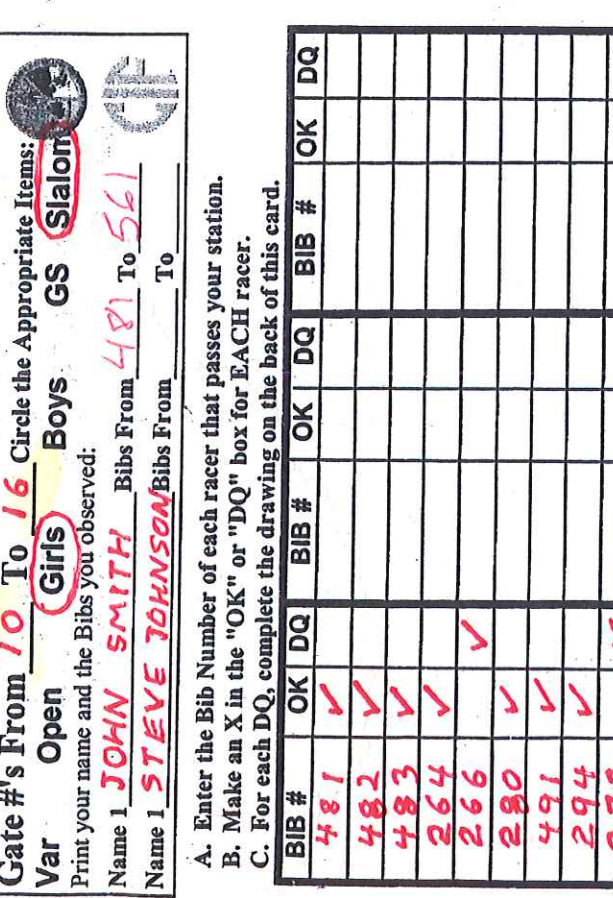 Gate #'s From 10 To 16 Circle the Appropriate Items:
Var Open Girls Boys GS Slalom
Print your name and the Bibs you observed:
Name 1 JOHN SMITH Bibs From 481 To 561
Name 1 STEVE JOHNSON Bibs From To
A. Enter the Bib Number of each racer that passes your station.
B. Make an X in the "OK" or "DQ" box for EACH racer.
C. For each DQ, complete the drawing on the back of this card.
BIB # OK DQ BIB # OK DQ BIB # OK DQ
481 ✓
482 ✓
483 ✓
264 ✓
266 ✓
280 ✓
491 ✓
294 ✓